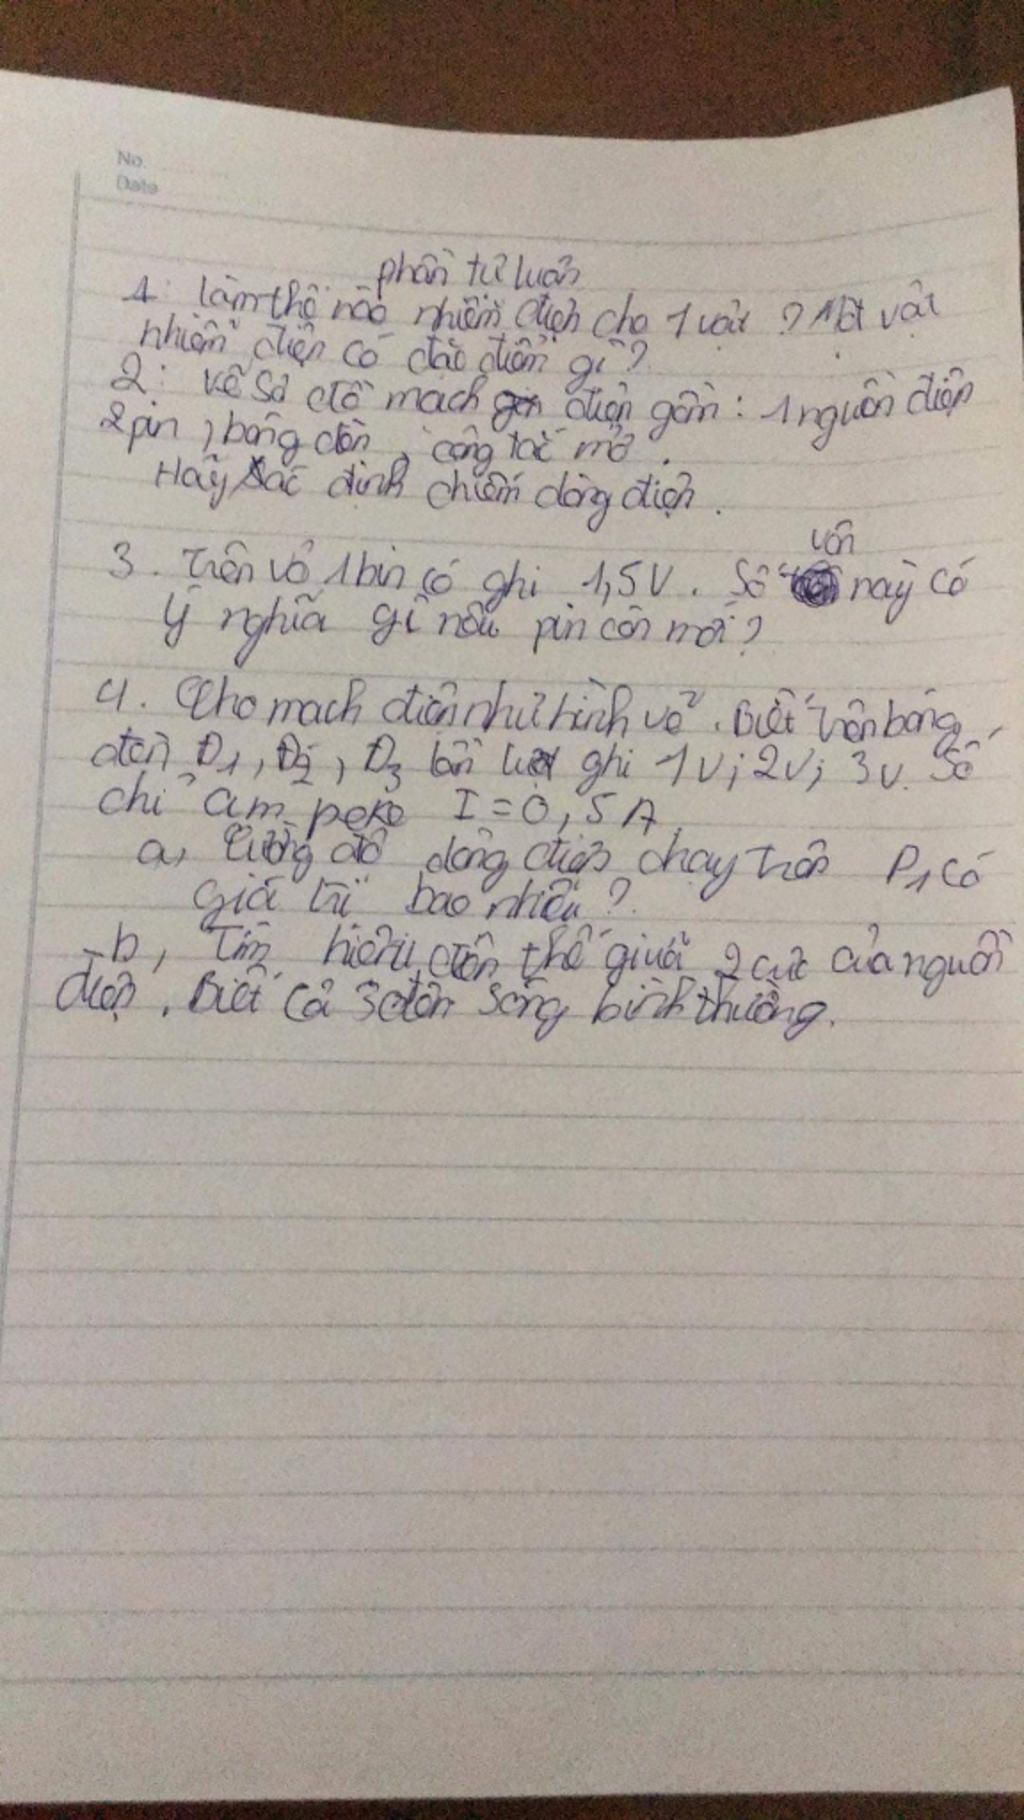 No.
Date
phần tự luận
1: làm thế nào nhiễm điện cho 1 vật ? Một vật
nhiễm điện có đặc điểm gì ?
2: vẽ sơ đồ mạch điện gồm : 1 nguồn điện
2 pin , bóng đèn , công tắc mở .
Hãy xác định chiều dòng điện .
3. Trên vỏ 1 bin có ghi 1,5V . Số vôn này có
ý nghĩa gì nếu pin còn mới ?
4. Cho mạch điện như hình vẽ . Biết trên bóng
đèn Đ1 , Đ2 , Đ3 lần lượt ghi 1V ; 2V ; 3V . Số
chỉ am pe kế I = 0,5 A
a, Cường độ dòng điện chạy trên Đ1 có
giá trị bao nhiêu ?
b, Tìm hiệu điện thế giữa 2 cực của nguồn
điện . Biết cả 3 đèn sáng bình thường .